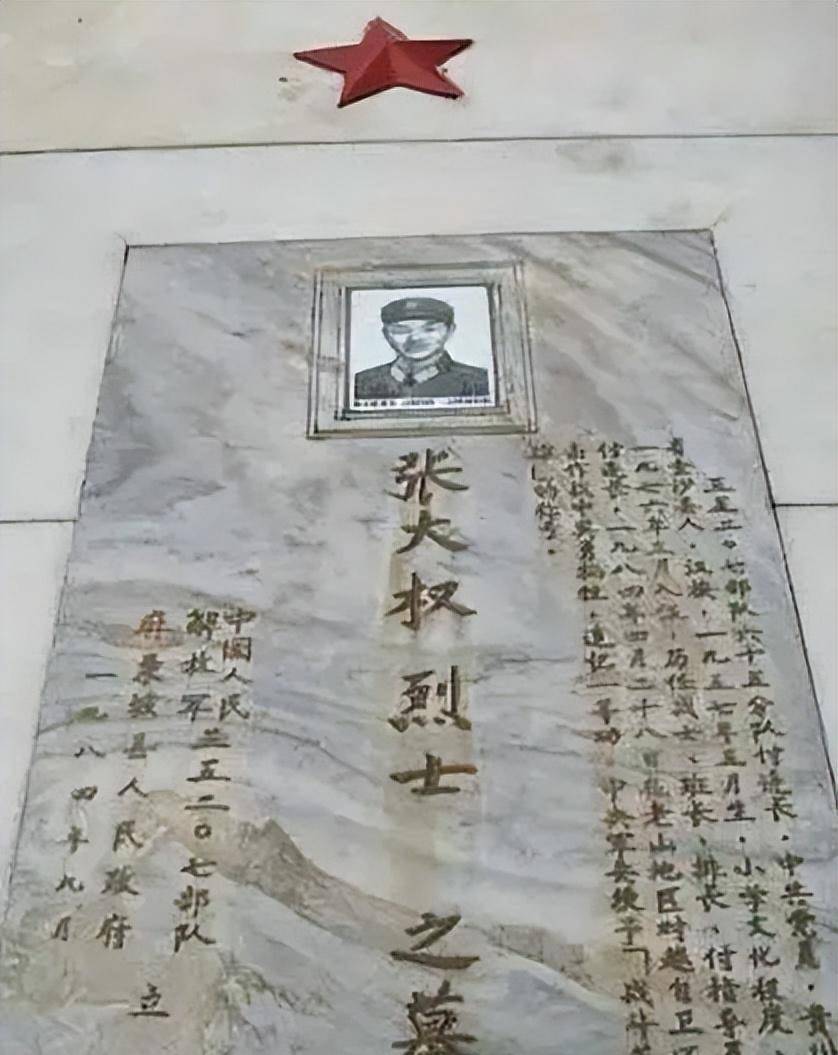 三五二〇七部队六十五分队付连长，中共党员，贵州
省金沙县人，汉族，一九五七年五月生，小学文化程度，
一九七六年三月入伍，历任战士、班长、排长、付指导员
付连长，一九八四年四月二十八日在老山地区对越自卫还
击作战中英勇牺牲，追记一等功 中央军委授予「战斗英
雄」的称号。
张大权烈士之墓
中国人民
解放军三五二〇七部队
麻栗坡县人民政府
一九八四年九月
立